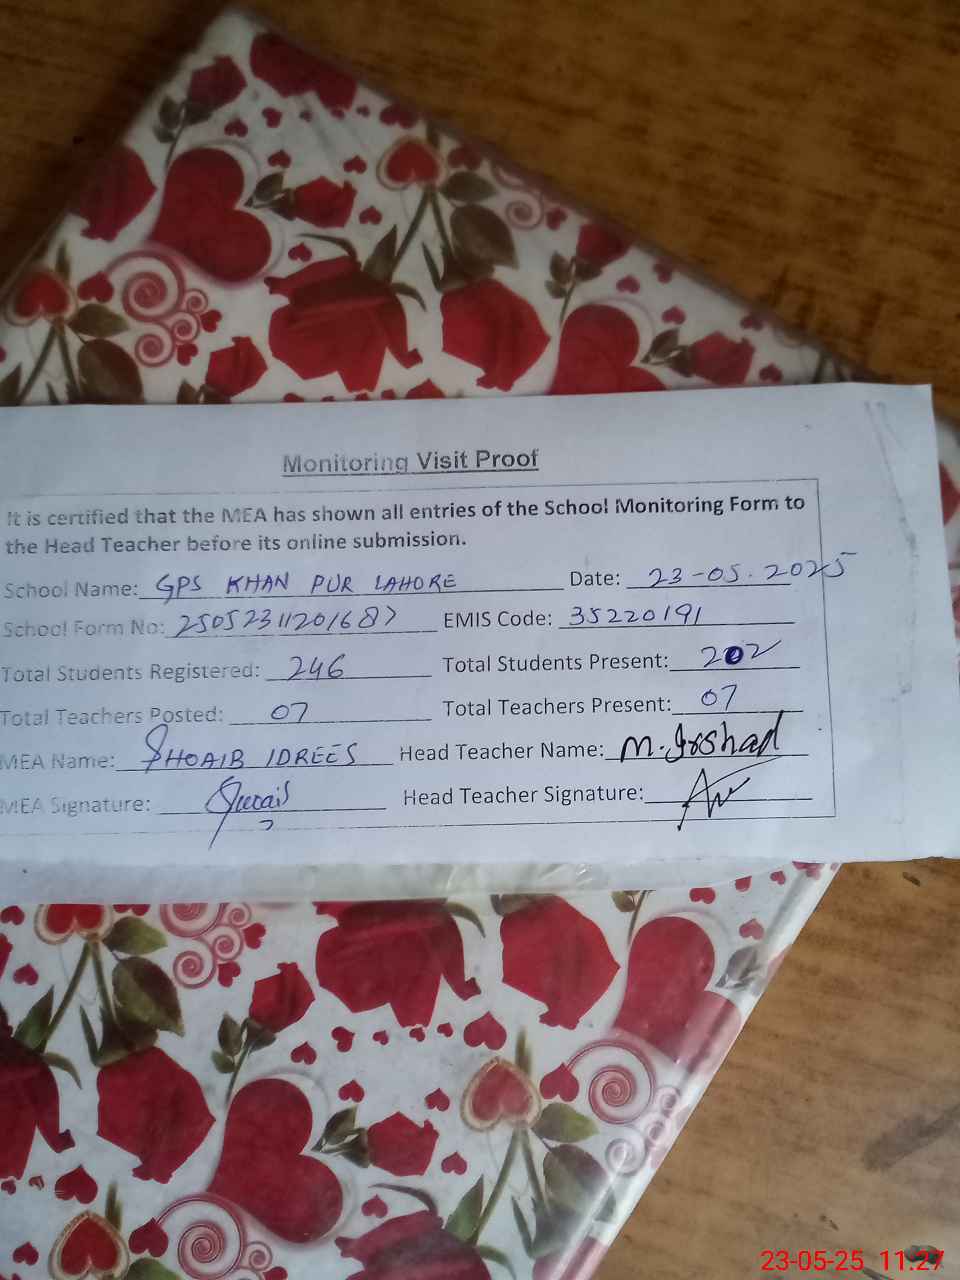 Monitoring Visit Proof
It is certified that the MEA has shown all entries of the School Monitoring Form to
the Head Teacher before its online submission.
School Name: GPS KHAN PUR LAHORE Date: 23-05-2025
School Form No: 25052311201687 EMIS Code: 35220191
Total Students Registered: 246 Total Students Present: 202
Total Teachers Posted: 07 Total Teachers Present: 07
MEA Name: SHOAIB IDREES Head Teacher Name: M. Irshad
MEA Signature: Head Teacher Signature:
23-05-25 11:27